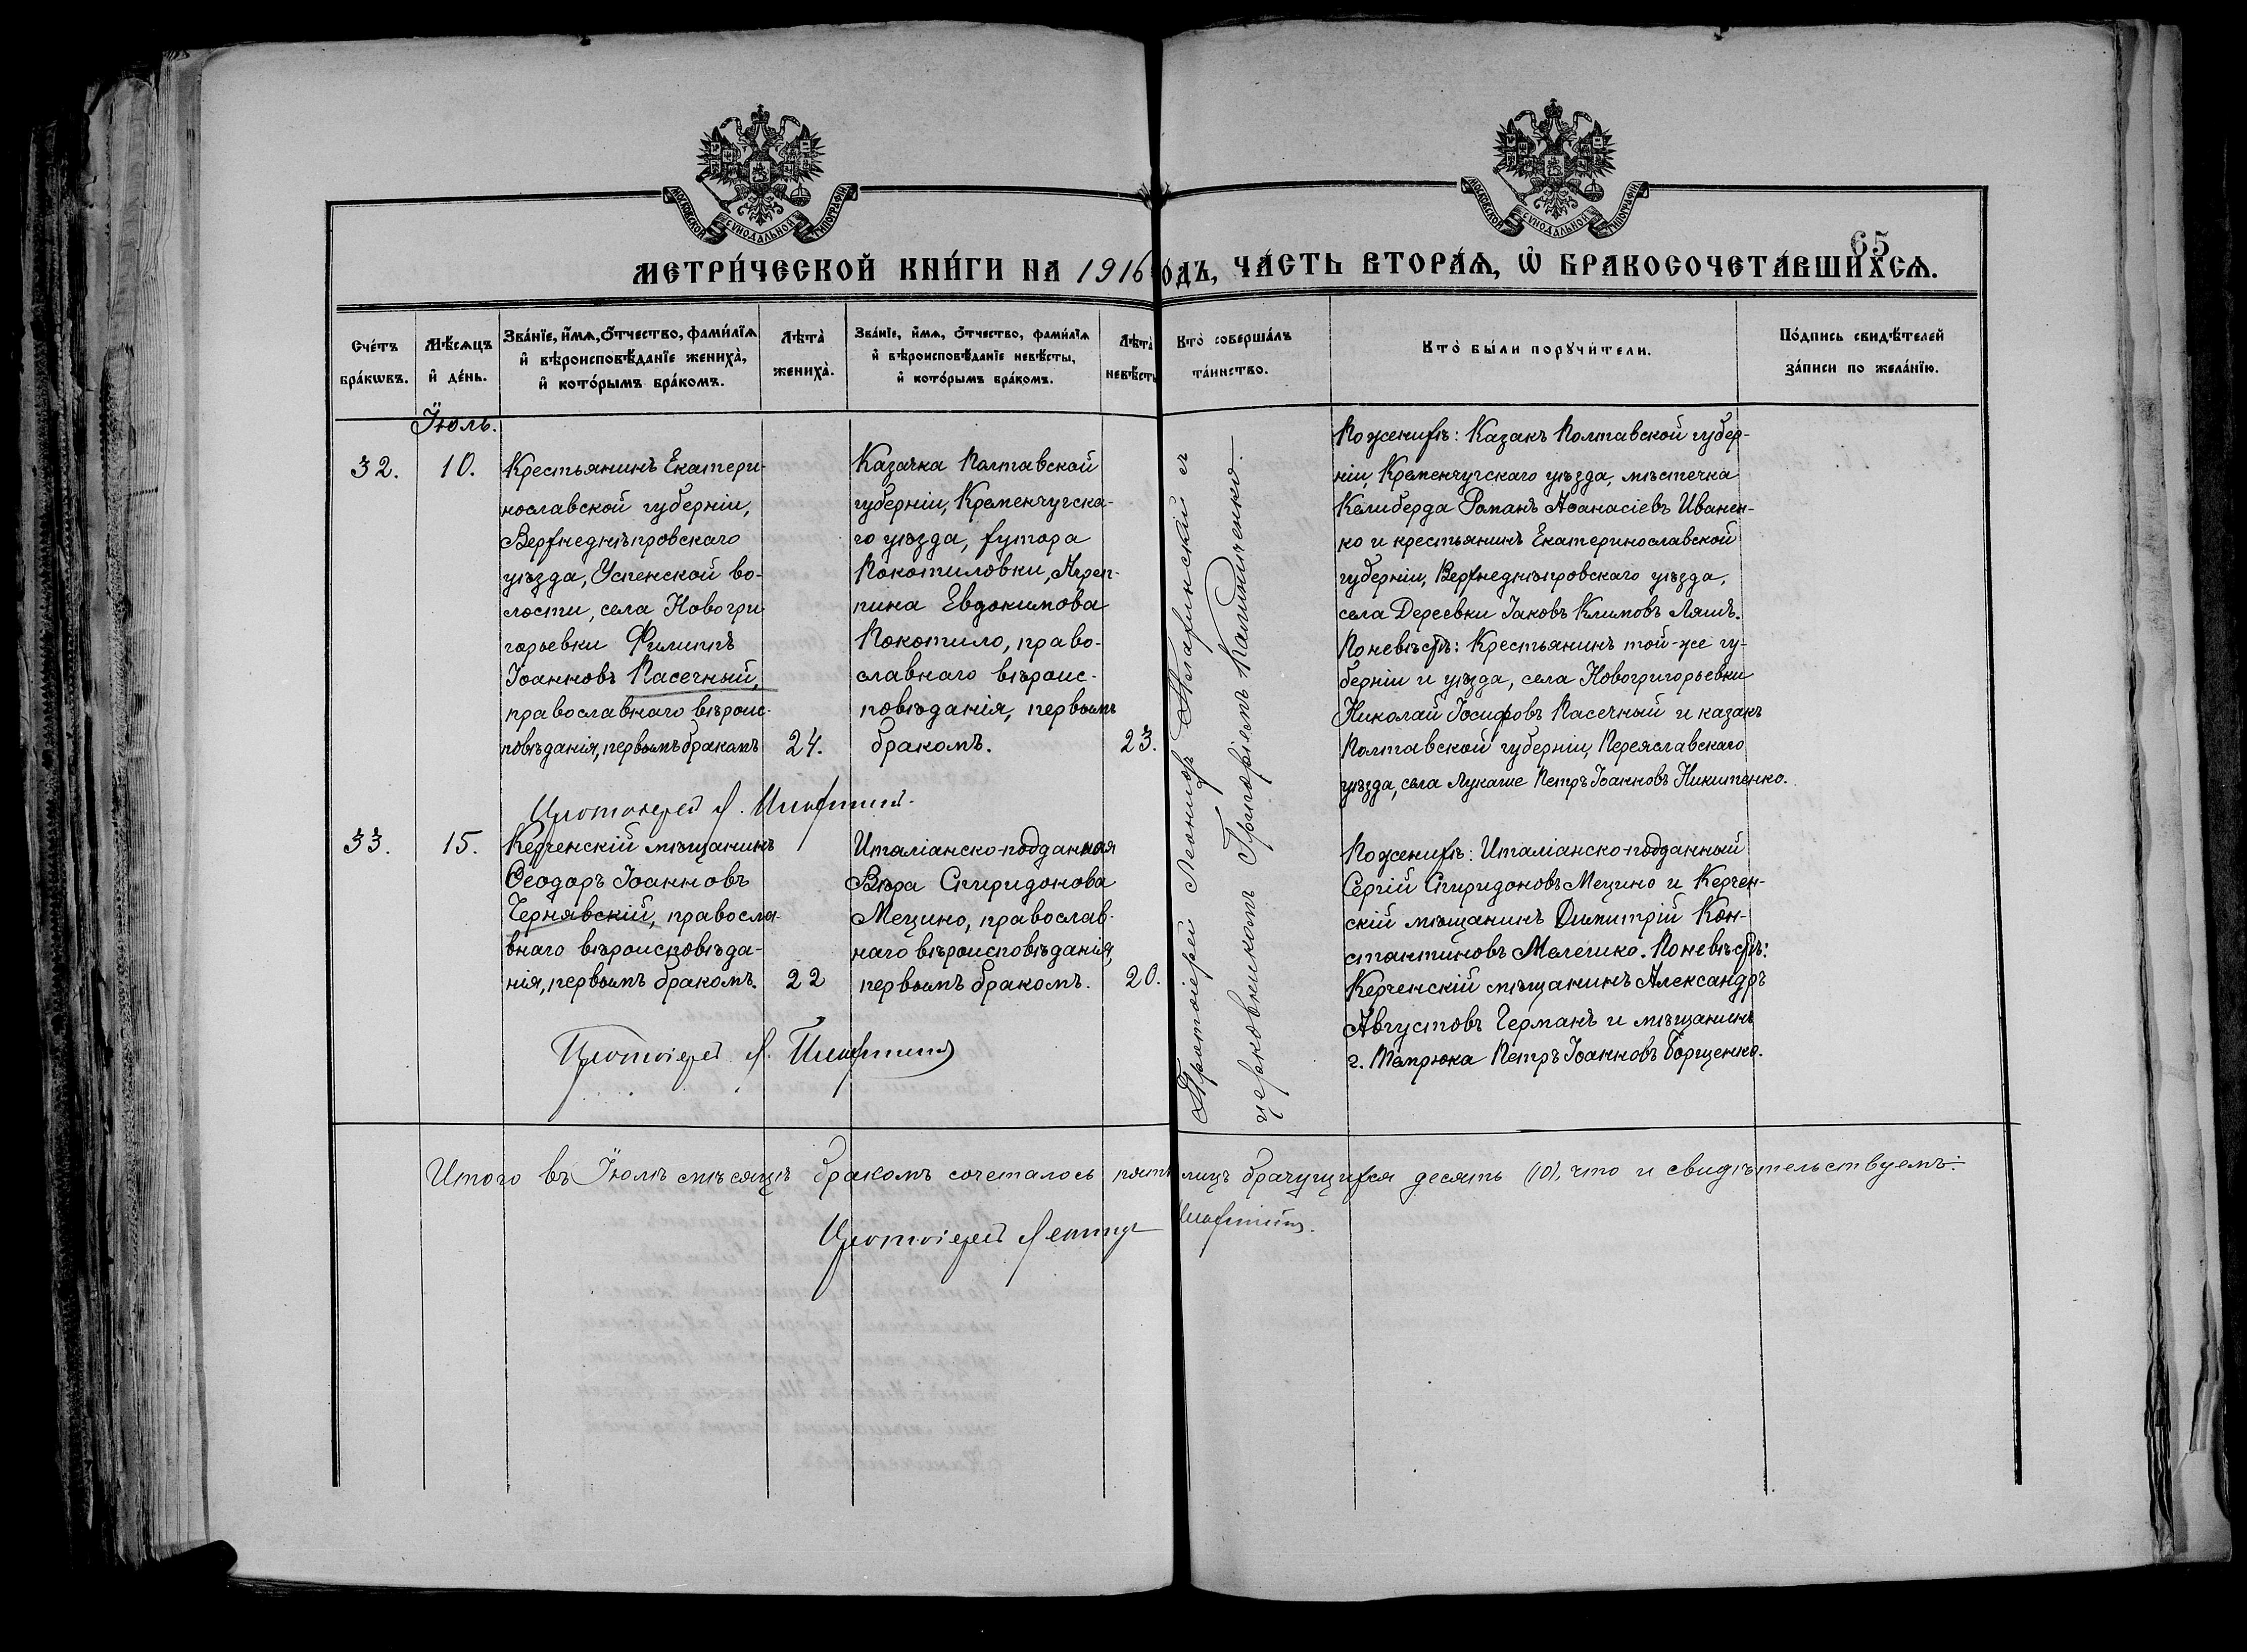 МОСКОВСКОЙ СѴНОДАЛЬНОЙ ТИПОГРАФІИ
МОСКОВСКОЙ СѴНОДАЛЬНОЙ ТИПОГРАФІИ
65
МЕТРИ́ЧЕСКОЙ КНИ́ГИ НА 1916 ОДЪ, ЧА́СТЬ ВТОРА́Ѧ, Ѡ҆ БРАКОСОЧЕТА́ВШИХСѦ.
Сче́тъ бра́кѡвъ.
Мѣ́сѧцъ и҆ де́нь.
Зва́нїе, и҆́мѧ, ѻ҆́тчество, фами́лїѧ и҆ вѣроисповѣ́данїе жениха̀, и҆ кото́рымъ бра́комъ.
Лѣта̀ жениха̀.
Зва́нїе, и҆́мѧ, ѻ҆́тчество, фами́лїѧ и҆ вѣроисповѣ́данїе невѣ́сты, и҆ кото́рымъ бра́комъ.
Лѣта̀ невѣ́сты
Кто̀ соверша́лъ та́инство.
Кто̀ бы́ли порꙋчи́тели.
По́дпись свидѣ́телей за́писи по жела́нїю.
Іюль.
32.
10.
Крестьянинъ Екатери-
нославской губерніи,
Верхнеднѣпровскаго
уѣзда, Успенской во-
лости, села Новогри
горьевки Филиппъ
Іоанновъ Пасечный,
православнаго вѣроис-
повѣданія, первымъ бракомъ
24.
Казачка Полтавской
губерніи, Кременчугска-
го уѣзда, хутора
Покотиловки, Агреп-
пина Евдокимова
Покотило, право-
славнаго вѣроис-
повѣданія, первымъ
бракомъ.
23.
Протоіерей Леонидъ
церковникомъ Григоріемъ
По женихѣ: Казакъ Полтавской губер-
ніи, Кременчугскаго уѣзда, мѣстечка
Келиберда Романъ Аѳанасіевъ Иванен-
ко и крестьянинъ Екатеринославской
губерніи, Верхнеднѣпровскаго уѣзда,
села Дереевки Іаковъ Климовъ Ляшъ.
По невѣстѣ: Крестьянинъ той-же гу-
берніи и уѣзда, села Новогригорьевки
Николай Іосифовъ Пасечный и казакъ
Полтавской губерніи, Переяславскаго
уѣзда, села Лукаше Петръ Іоанновъ Никитенко.
Протоіерей Л.
33.
15.
Керченскій мѣщанинъ
Ѳеодоръ Іоанновъ
Чернявскій, правосла-
внаго вѣроисповѣда-
нія, первымъ бракомъ.
22
Италіанско-подданная
Вѣра Спиридонова
Мецино, православ-
наго вѣроисповѣданія,
первымъ бракомъ.
20.
По женихѣ: Италіанско-подданный
Сергій Спиридоновъ Мецино и Керчен-
скій мѣщанинъ Димитрій Кон-
стантиновъ Мелешко. По невѣстѣ:
Керченскій мѣщанинъ Александръ
Августовъ Германъ и мѣщанинъ
г. Темрюка Петръ Іоанновъ Борщенко.
Протоіерей Л.
Итого въ Іюлѣ мѣсяцѣ бракомъ сочеталось пять лицъ брачущихся десять (10), что и свидѣтельствуемъ:
Протоіерей Леонидъ